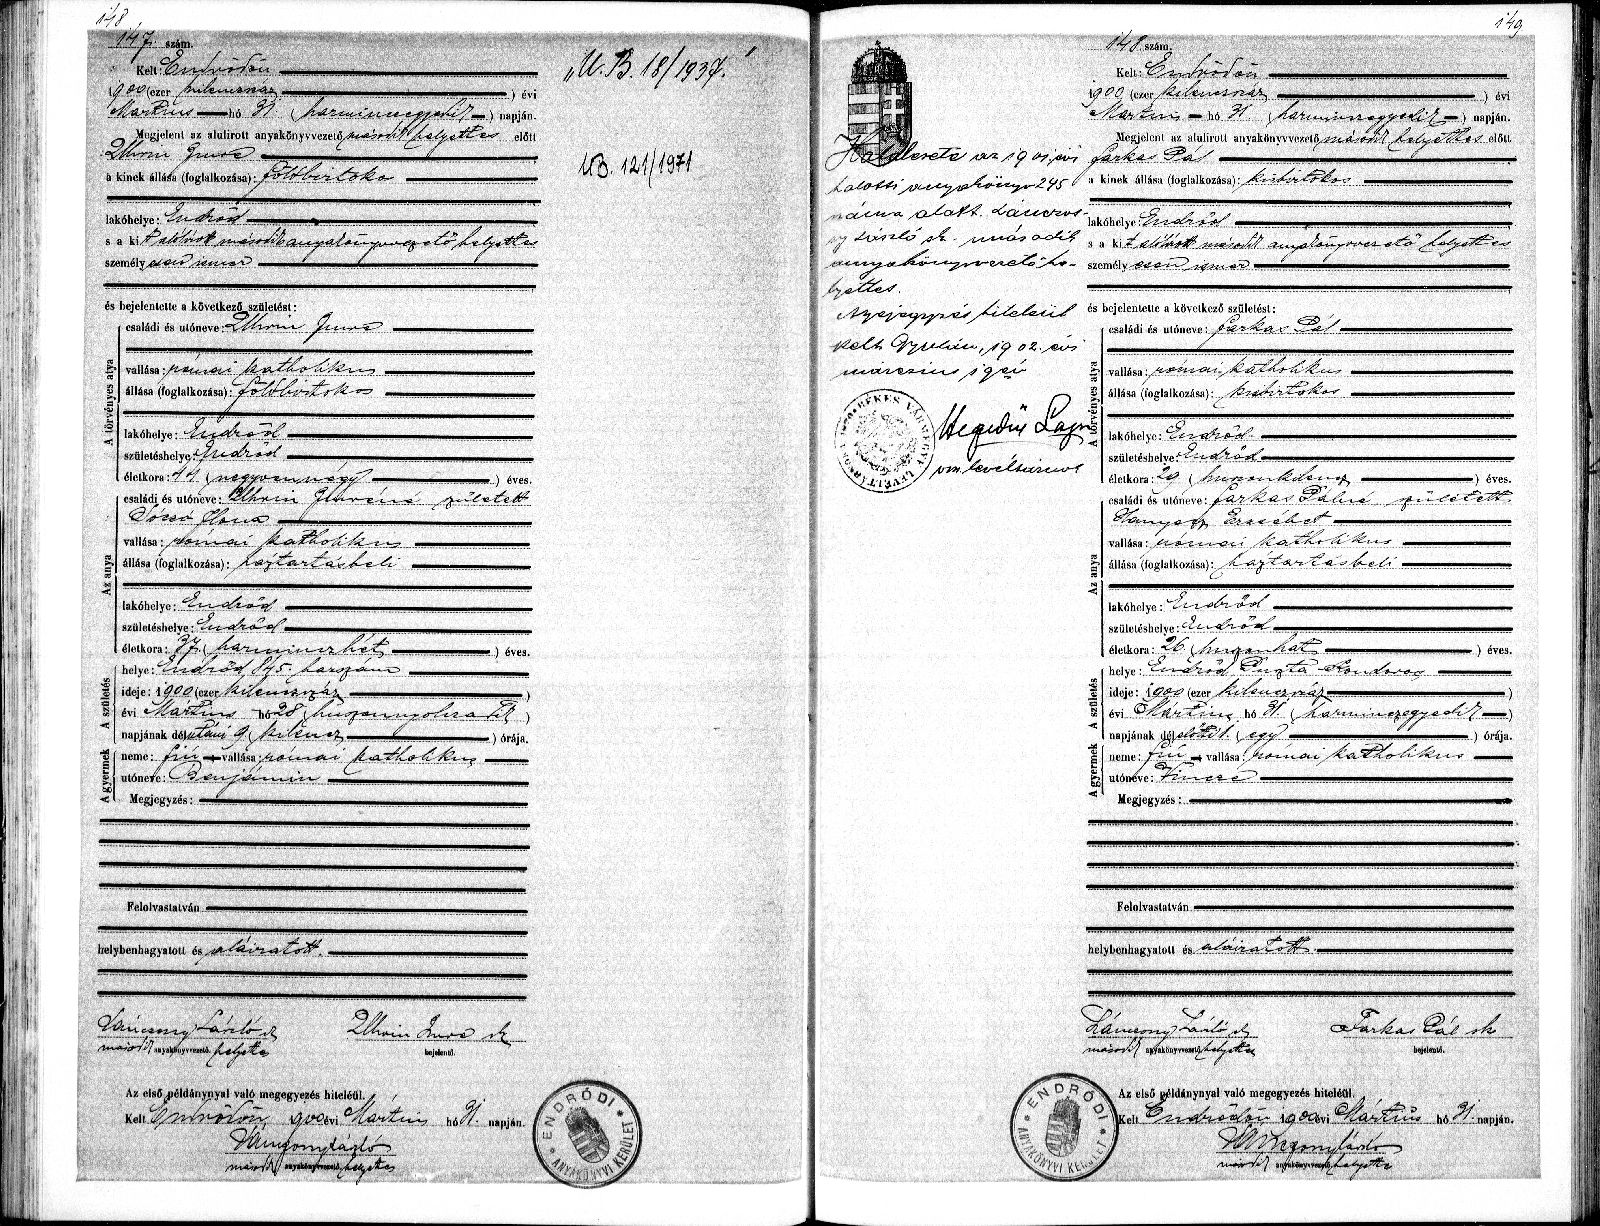 148
147. szám.
Kelt: Endrődön
1900 (ezer kilenczszáz) évi
Martius hó 31 (harminczegyedik) napján.
Megjelent az alulirott anyakönyvvezető második helyettes előtt
Uhrin Imre
a kinek állása (foglalkozása): földbirtokos
lakóhelye: Endrőd
s a kit alólirott második anyakönyvvezető helyettes
személyesen ismer
és bejelentette a következő születést:
A törvényes atya
családi és utóneve: Uhrin Imre
vallása: római katholikus
állása (foglalkozása): földbirtokos
lakóhelye: Endrőd
születéshelye: Endrőd
életkora: 44 (negyvennégy) éves.
Az anya
családi és utóneve: Uhrin Imréné született
Dócsó Ilona
vallása: római katholikus
állása (foglalkozása): háztartásbeli
lakóhelye: Endrőd
születéshelye: Endrőd
életkora: 37 (harminczhét) éves.
A születés
helye: Endrőd, 845. házszám
ideje: 1900 (ezer kilenczszáz)
évi Martius hó 28 (huszonnyolczadik)
napjának délutáni 9 (kilencz) órája.
A gyermek
neme: fiú vallása: római katholikus
utóneve: Benjámin
Megjegyzés:
Felolvastatván
helybenhagyatott és aláiratott.
Lánczony László sk
második anyakönyvvezető helyettes
Uhrin Imre sk
bejelentő.
Az első példánynyal való megegyezés hiteléül.
Kelt Endrődön, 1900 évi Mártius hó 31. napján.
Lánczony László
második anyakönyvvezető helyettes
ENDRŐDI
ANYAKÖNYVI KERÜLET
"U. B. 18/1937."
UB. 121/1971
Halálesete az 1901. évi
halotti anyakönyv 245
száma alatt. Lánczo-
ny László sk. második
anyakönyvvezető he-
lyettes.
A feljegyzés hiteléül
kelt Gyulán, 1902. évi
márczius 1-jén
Hegedüs Lajos
vm. levéltárnok
BÉKES VÁRMEGYE LEVÉLTÁRNOKA
149
148. szám.
Kelt: Endrődön
1900 (ezer kilenczszáz) évi
Martius hó 31 (harminczegyedik) napján.
Megjelent az alulirott anyakönyvvezető második helyettes előtt
Farkas Pál
a kinek állása (foglalkozása): kisbirtokos
lakóhelye: Endrőd
s a kit alólirott második anyakönyvvezető helyettes
személyesen ismer
és bejelentette a következő születést:
A törvényes atya
családi és utóneve: Farkas Pál
vallása: római katholikus
állása (foglalkozása): kisbirtokos
lakóhelye: Endrőd
születéshelye: Endrőd
életkora: 29 (huszonkilencz) éves.
Az anya
családi és utóneve: Farkas Pálné született
Erzsébet
vallása: római katholikus
állása (foglalkozása): háztartásbeli
lakóhelye: Endrőd
születéshelye: Endrőd
életkora: 26 (huszonhat) éves.
A születés
helye: Endrőd Puszta Kondoros
ideje: 1900 (ezer kilenczszáz)
évi Mártius hó 31. (harminczegyedik)
napjának délelőtti 1. (egy) órája.
A gyermek
neme: fiú vallása: római katholikus
utóneve: Vincze
Megjegyzés:
Felolvastatván
helybenhagyatott és aláiratott.
Lánczony László sk
második anyakönyvvezető helyettes
Farkas Pál sk
bejelentő.
Az első példánynyal való megegyezés hiteléül.
Kelt Endrődön 1900 évi Mártius hó 31. napján.
Lánczony László
második anyakönyvvezető helyettes
ENDRŐDI
ANYAKÖNYVI KERÜLET